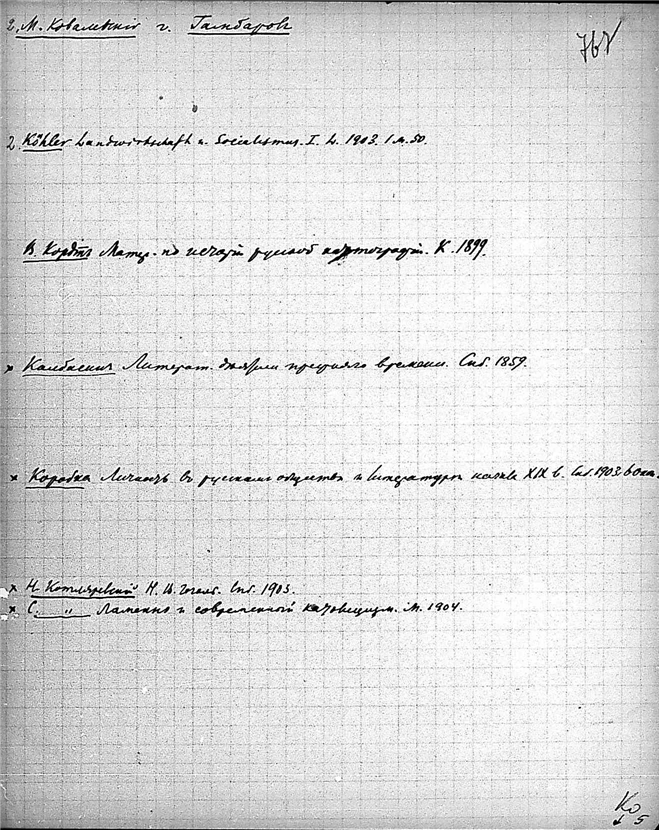 2. М. Ковалевскій г. Гамбаровъ
767
2. Köhler Landwirtschaft u. Socialismus. I. L. 1903. 1 M. 50.
В. Кордтъ Матер. по исторіи русской картографіи. К. 1899.
× Колбасинъ Литерат. дѣятели прежняго времени. Спб. 1859.
× Коробка Личность въ русскомъ обществѣ и литературѣ начала XIX в. Спб. 1903.
× Н. Котляревскій Н. В. Гоголь. Спб. 1903.
× С. " Ламеннэ и современный католицизм. М. 1904.
Ко
↓ 5